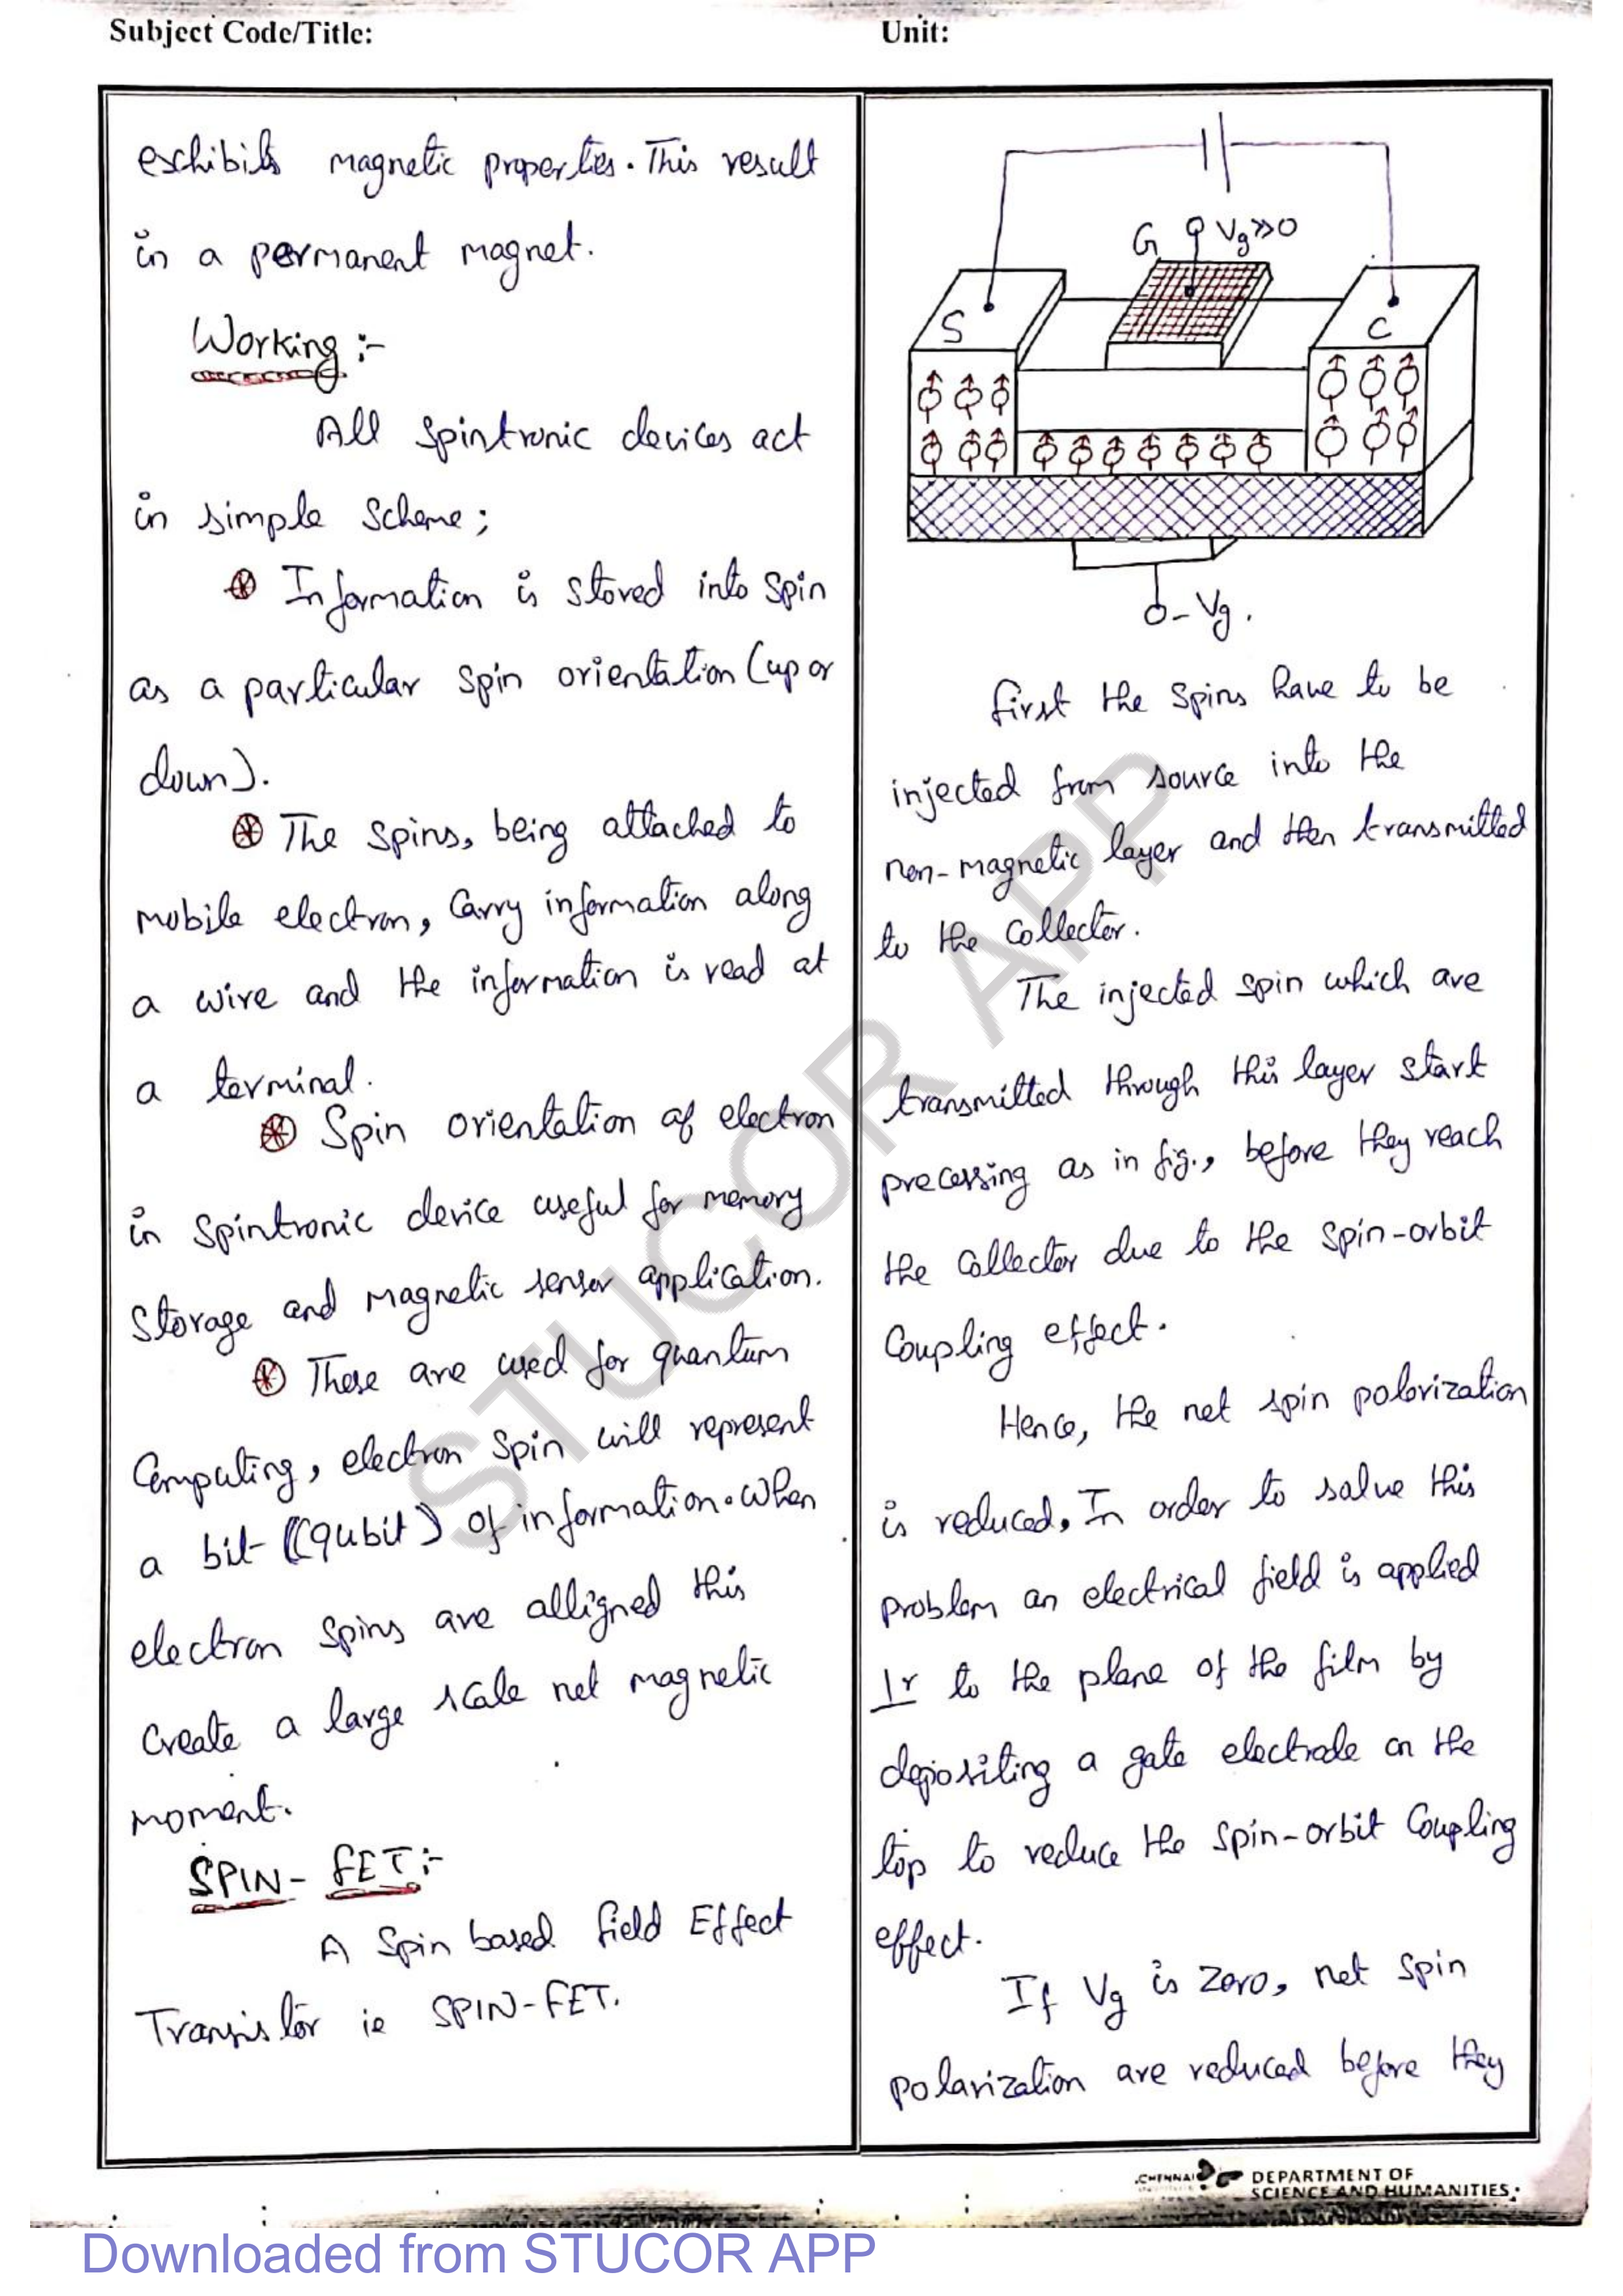 Subject Code/Title:
Unit:
exhibits magnetic properties. This result
in a permanent magnet.
Working :-
All spintronic devices act
in simple scheme;
⊛ Information is stored into spin
as a particular spin orientation (up or
down).
⊛ The spins, being attached to
mobile electron, carry information along
a wire and the information is read at
a terminal.
⊛ Spin orientation of electron
in spintronic device useful for memory
storage and magnetic sensor application.
⊛ These are used for quantum
Computing, electron spin will represent
a bit ((qubit) of information. when
electron spins are alligned this
create a large scale net magnetic
moment.
SPIN - FET :-
A Spin based field Effect
Transistor ie SPIN-FET.
G Vg>>0
S
C
- Vg.
first the spins have to be
injected from source into the
non-magnetic layer and then transmitted
to the collector.
The injected spin which are
transmitted through this layer start
precessing as in fig., before they reach
the collector due to the spin-orbit
coupling effect.
Hence, the net spin polorization
is reduced, In order to salve this
problem an electrical field is applied
⊥r to the plane of the film by
depositing a gate electrode on the
top to reduce the spin-orbit coupling
effect.
If Vg is zero, net spin
polarization are reduced before they
CHENNAI
DEPARTMENT OF
SCIENCE AND HUMANITIES
STUCOR APP
Downloaded from STUCOR APP